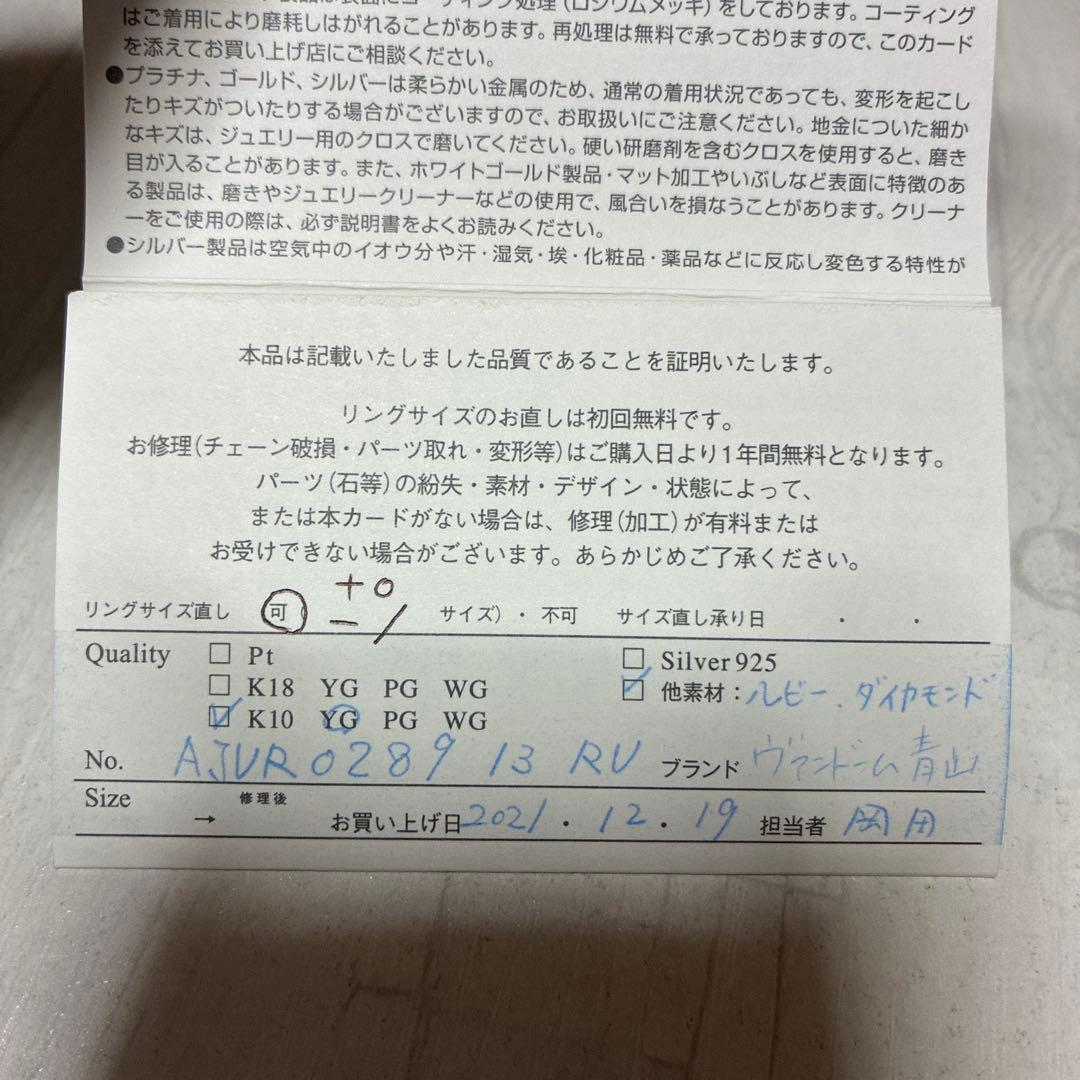 製品は表面にコーティング処理(ロジウムメッキ)をしております。コーティング
はご着用により磨耗しはがれることがあります。再処理は無料で承っておりますので、このカード
を添えてお買い上げ店にご相談ください。
●プラチナ、ゴールド、シルバーは柔らかい金属のため、通常の着用状況であっても、変形を起こし
たりキズがついたりする場合がございますので、お取扱いにご注意ください。地金についた細か
なキズは、ジュエリー用のクロスで磨いてください。硬い研磨剤を含むクロスを使用すると、磨き
目が入ることがあります。また、ホワイトゴールド製品・マット加工やいぶしなど表面に特徴のあ
る製品は、磨きやジュエリークリーナーなどの使用で、風合いを損なうことがあります。クリーナ
ーをご使用の際は、必ず説明書をよくお読みください。
●シルバー製品は空気中のイオウ分や汗・湿気・埃・化粧品・薬品などに反応し変色する特性が
本品は記載いたしました品質であることを証明いたします。
リングサイズのお直しは初回無料です。
お修理(チェーン破損・パーツ取れ・変形等)はご購入日より1年間無料となります。
パーツ(石等)の紛失・素材・デザイン・状態によって、
または本カードがない場合は、修理(加工)が有料または
お受けできない場合がございます。あらかじめご了承ください。
+0
リングサイズ直し 可 −1 サイズ)・不可 サイズ直し承り日 ・ ・
Quality □ Pt □ Silver925
□ K18 YG PG WG ☑ 他素材:ルビー、ダイヤモンド
☑ K10 YG PG WG
No. AJVR0289 13 RU ブランド ヴァンドーム青山
Size 修理後
→ お買い上げ日 2021・12・19 担当者 岡田